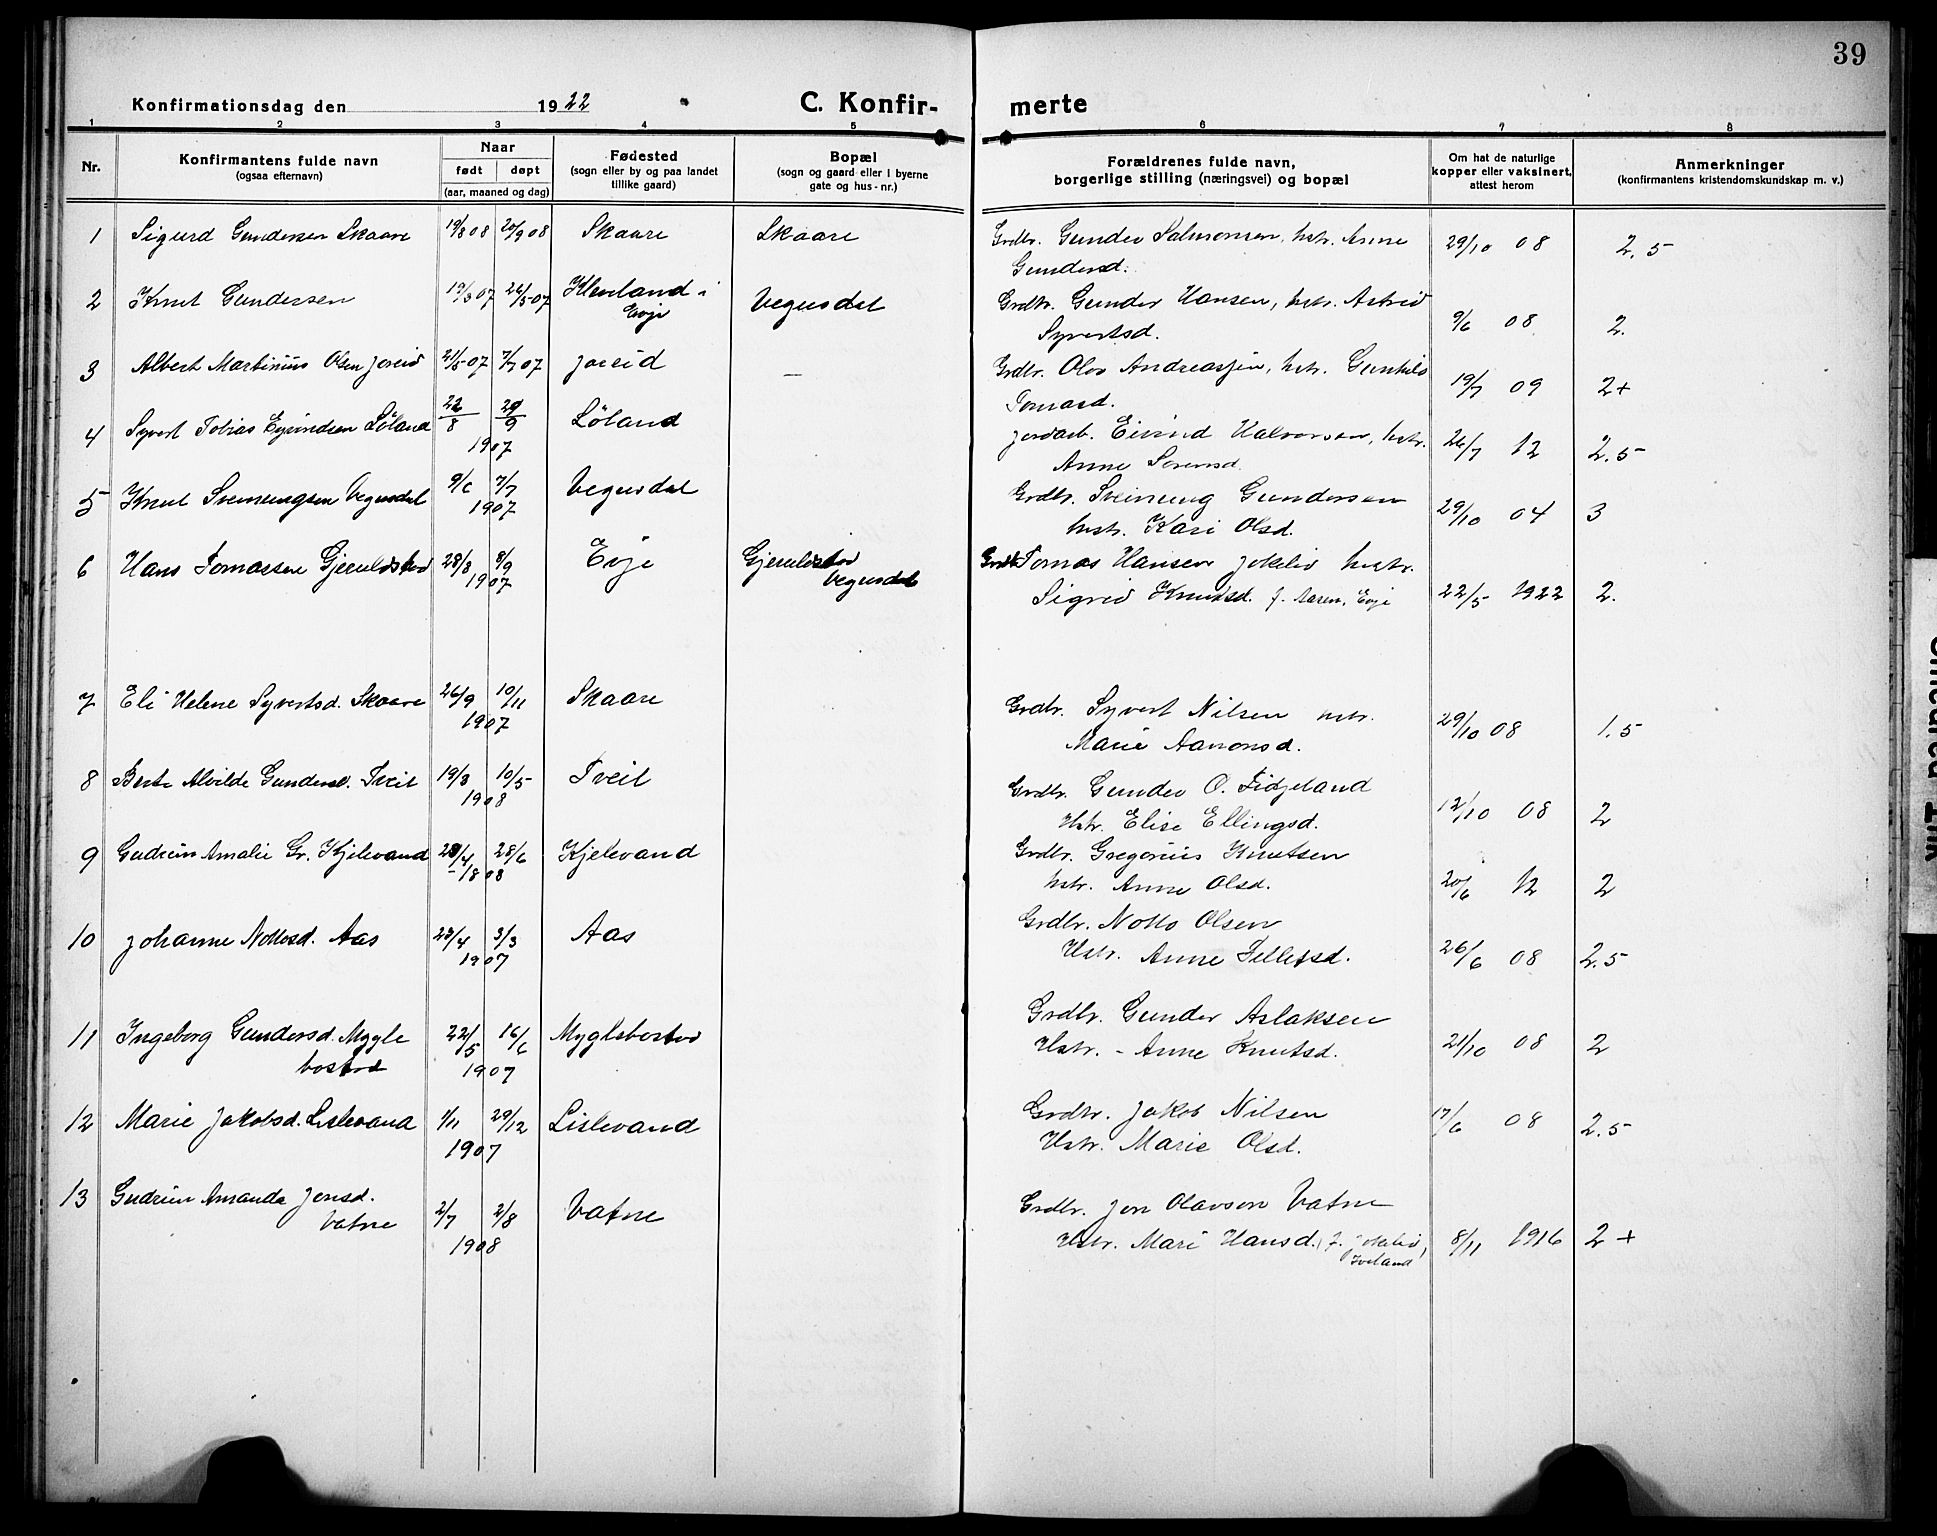 39
Konfirmationsdag den 1922
C. Konfir-
merte
1 2 3 4 5 6 7 8
Nr.
Konfirmantens fulde navn
(ogsaa efternavn)
Naar
født døpt
(aar, maaned og dag)
Fødested
(sogn eller by og paa landet
tillike gaard)
Bopæl
(sogn og gaard eller i byerne
gate og hus-nr.)
Forældrenes fulde navn,
borgerlige stilling (næringsvei) og bopæl
Om hat de naturlige
kopper eller vaksinert,
attest herom
Anmerkninger
(konfirmantens kristendomskundskap m. v.)
1 Sigurd Gundersen Skaare 19/8 08 20/9 08 Skaare Skaare Grdbr. Gunder Salmonsen, hstr. Anne 29/10 08 2.5
Gundersd.
2 Knut Gundersen 19/3 07 26/5 07 Klevland i Vegusdal Grdbr. Gunder Hansen, hstr. Astrid 9/6 08 2.
Evje
Syvertsd.
3 Albert Martinius Olsen Joreid 21/5 07 7/7 07 Joreid — Grdbr. Olav Andreassen, hstr. Gunhild 19/7 09 2+
Tomasd.
4 Syvert Tobias Eyvindsen Løland 22/8 29/9 Løland Jordarb. Eivind Halvorsen, hstr. 26/7 12 2.5
1907
Anne Sørensd.
5 Knut Sveinungsen Vegusdal 9/6 7/7 Vegusdal Grdbr. Sveinung Gundersen 29/10 04 3
1907
hstr. Kari Olsd.
6 Hans Tomassen Gjeruldstad 28/3 8/9 Evje Gjeruldstad Grdbr. Tomas Hansen Jokeliv hustr.
1907 Vegusdal
Sigrid Knutsd. f. Aasen, Evje 22/5 1922 2.
7 Eli Helene Syvertsd. Skaare 26/9 10/11 Skaare Grdbr. Syvert Nilsen hstr. 29/10 08 1.5
1907
Marie Aanonsd.
8 Berte Alvilde Gundersd. Tveit 19/3 10/5 Tveit Grdbr. Gunder O. Fidjeland 12/10 08 2
1908
Hstr. Elise Ellingsd.
9 Gudrun Amalie Gr. Kjelevand 28/4 28/6 Kjelevand Grdbr. Gregorius Knutsen
1808
hstr. Anne Olsd. 20/6 12 2
10 Johanne Nottosd. Aas 23/4 3/3 Aas Grdbr. Notto Olsen
1907
Hstr. Anne Tellefsd. 26/6 08 2.5
11 Ingeborg Gundersd. Mygle 22/5 16/6 Myglebostad Grdbr. Gunder Aslaksen
bostad 1907
Hstr. - Anne Knutsd. 21/10 08 2
12 Marie Jakobsd. Lislevand 1/11 29/12 Lislevand Grdbr. Jakob Nilsen 17/6 08 2.5
1907
Hstr. Marie Olsd.
13 Gudrun Amanda Jonsd.
Vatne 2/7 2/8 Vatne Grdbr. Jon Olavson Vatne
1908
Hstr. Mari Hansd. (f. Jokeliv, 8/11 1916 2+
Iveland)